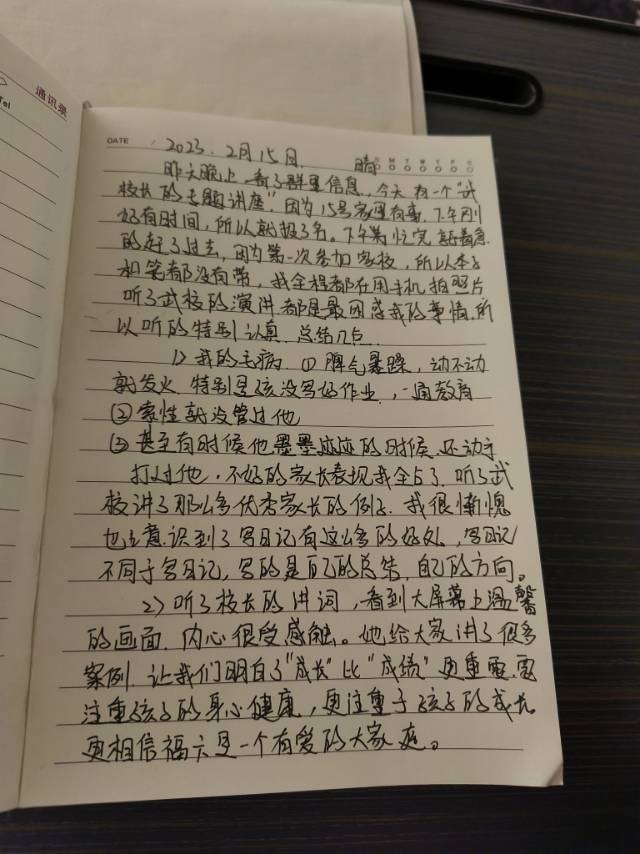 通讯录
Tel
DATE 2023.2月15日. 晴 M T W T F
昨天晚上,看了群里信息,今天有一个"武
校长的专题讲座",因为15号家里有事,下午刚
好有时间,所以就报了名。下午 忙完,就着急
的赶了过去,因为第一次参加家校,所以本子
和笔都没有带,我全程都在用手机拍照片
听了武校的演讲都是最困惑我的事情,所
以听的特别认真.总结几点
1)我的毛病.①脾气暴躁,动不动
就发火.特别是孩没写好作业,一通教育
②索性就没管过他
③甚至有时候他墨墨迹迹的时候.还动手
打过他,不好的家长表现我全占了.听了武
校讲了那么多优秀家长的例子.我很惭愧
也意识到了写日记有这么多的好处,写日记
不同于写日记,写的是自己的总结,自己的方向。
2)听了校长的讲词,看到大屏幕上温馨
的画面.内心很受感触。她给大家讲了很多
案例.让我们明白了"成长"比"成绩"更重要.要
注重孩子的身心健康,更注重于孩子的成长.
更相信福六是一个有爱的大家庭。